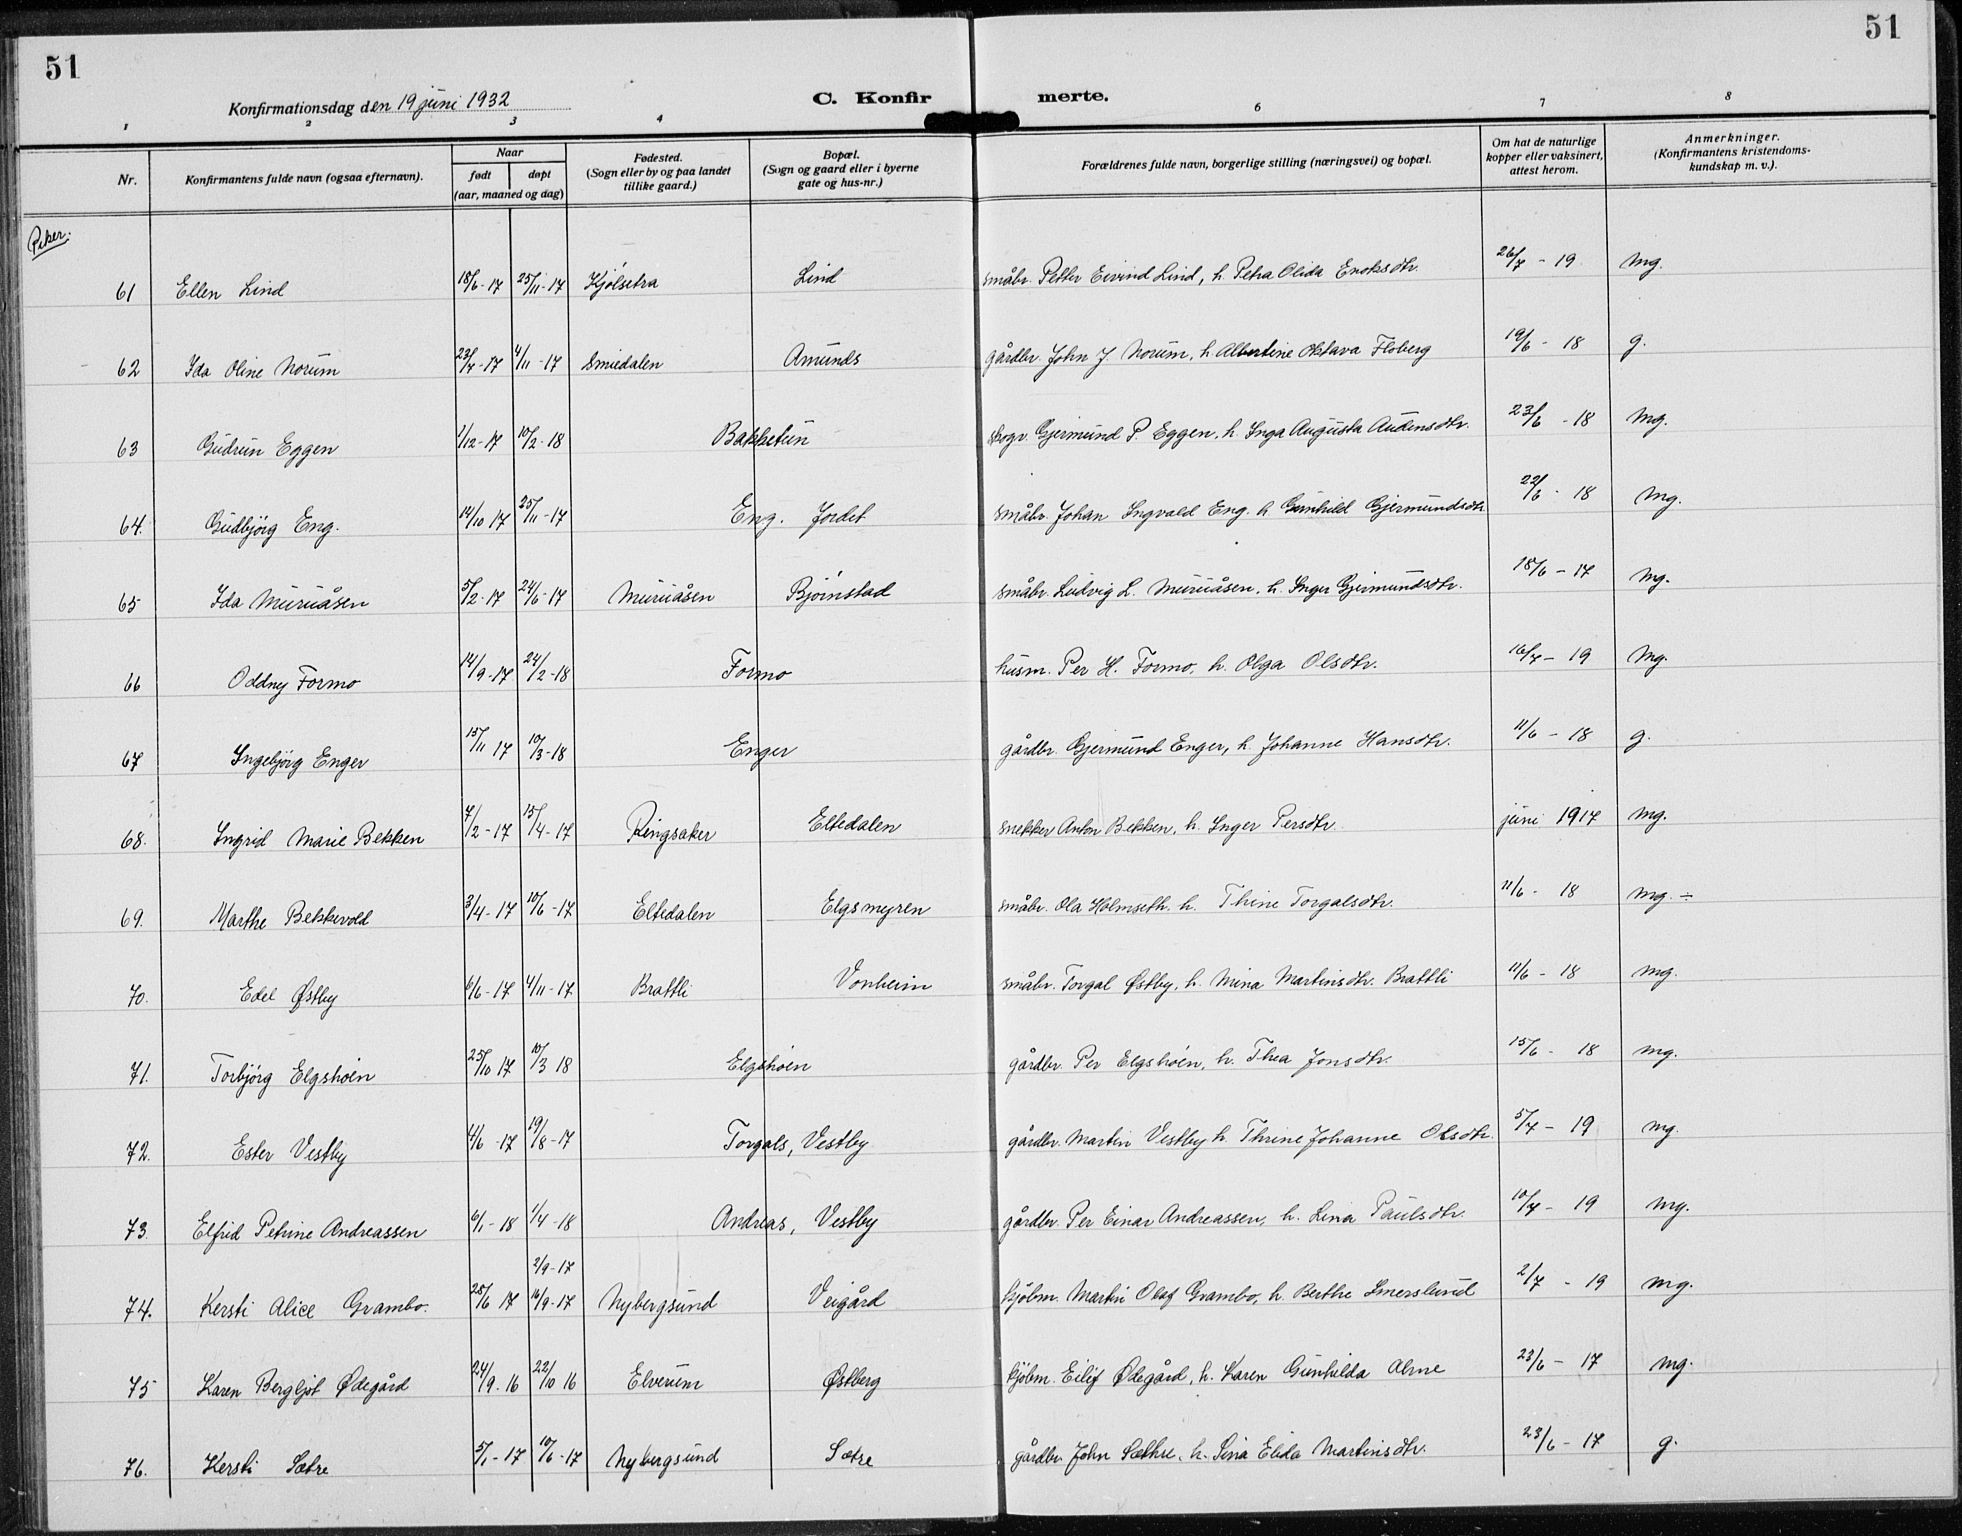 51
51
Konfirmationsdag den 19 juni 1932
C. Konfirmerte.
1 2 3 4 6 7 8
Nr. Konfirmantens fulde navn (ogsaa efternavn). Naar født døpt (aar, maaned og dag) Fødested. (Sogn eller by og paa landet tillike gaard.) Bopæl. (Sogn og gaard eller i byerne gate og hus-nr.) Forældrenes fulde navn, borgerlige stilling (næringsvei) og bopæl. Om hat de naturlige kopper eller vaksinert, attest herom. Anmerkninger. (Konfirmantens kristendoms-kundskap m. v.).
Piker:
61 Ellen Lind 18/6-17 25/11-17 Kjølsetra Lind småbr. Petter Eivind Lind, h. Petra Olida Enoksdtr. 26/7-19 mg.
62 Ida Oline Norum 23/7-17 4/11-17 Smiedalen Amunds gårdbr. John J Norum, h. Albertine Oktava Floberg 19/6-18 g.
63 Gudrun Eggen 1/12-17 10/2-18 Bakketun Gjermund P. Eggen, h. Inga Augusta Audensdtr. 23/6-18 mg.
64. Gudbjörg Eng. 14/10 17 25/11-17 Eng. Jordet småbr. Johan Ingvald Eng. h. Gunhild Gjermundsdtr. 22/6-18 mg.
65 Ida Muruåsen 5/2-17 24/6-17 Muruåsen Bjørnstad småbr. Ludvig L. Muruåsen, h. Inger Gjermundsdtr. 18/6-17 mg.
66 Oddny Formo 14/9-17 24/2-18 Formo husm. Per H. Formo, h. Olga Olsdtr. 16/7-19 mg.
67 Ingebjörg Enger 15/11 17 10/3-18 Enger gårdbr. Gjermund Enger, h. Johanne Hansdtr. 11/6-18 g.
68. Ingrid Marie Bekken 7/2-17 15/4-17 Ringsaker Eltedalen snekker Anton Bekken, h. Inger Persdtr. juni 1917 mg.
69. Marthe Bekkevold 3/4-17 10/6-17 Eltedalen Elgsmyren småbr. Ola Holmseth. h. Thine Torgalsdtr. 11/6-18 mg. ÷
70. Edel Østby 6/6-17 4/11-17 Brattli Vonheim småbr. Torgal Østby, h. Mina Martinsdtr. Brattli 11/6-18 mg.
71. Torbjörg Elgshøen 25/10 17 10/3 18 Elgshøen gårdbr. Per Elgshøen, h. Thea Jonsdtr. 15/6-18 mg.
72. Ester Vestby 4/6-17 19/8-17 Torgals, Vestby gårdbr. Martin Vestby h. Thrine Johanne Olsdtr. 5/7-19 mg.
73 Elfrid Petrine Andreassen 6/1-18 1/4-18 Andreas, Vestby gårdbr. Per Einar Andreassen, h. Lina Paulsdtr. 10/7-19 mg.
2/9-17
74. Kersti Alice Grambo. 25/6 17 16/9-17 Nybergsund Veigård kjøbm. Martin Olaf Grambo, h. Berthe Smerslund 2/7-19 mg.
75 Karen Bergljot Ødegård 24/9-16 22/10 16 Elverum Østberg kjøbm. Eilif Ødegård, h. Karen Gunhilda Alme 23/6-17 mg.
76. Kersti Sætre 5/1-17 10/6-17 Nybergsund Sætre gårdbr. John Sæthre, h. Sina Elida Martinsdtr. 23/6-17 g.